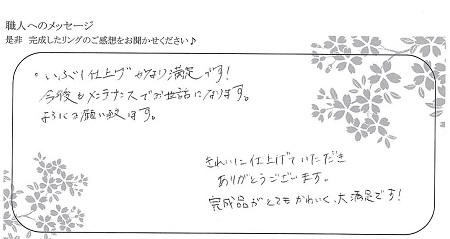 職人へのメッセージ
是非 完成したリングのご感想をお聞かせください♪
・いぶし仕上げかなり満足です!
今後もメンテナンスでお世話になります。
よろしくお願い致します。
きれいに仕上げていただき
ありがとうございます。
完成品がとてもかわいく、大満足です!